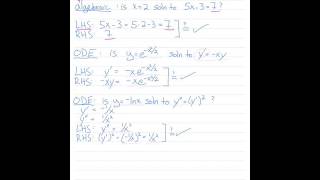 algebraic: is x=2 soln to 5x-3=7?
LHS: 5x-3=5·2-3=7
RHS: 7
?
= ✓
ODE: is y=e^(-x²/2) soln to y'=-xy
LHS: y'=-xe^(-x²/2)
RHS: -xy=-xe^(-x²/2)
?
= ✓
ODE: is y=-lnx soln to y"=(y')²?
y'=-1/x
y"=1/x²
LHS: y"=1/x²
RHS: (y')²=(-1/x)²=1/x²
?
= ✓